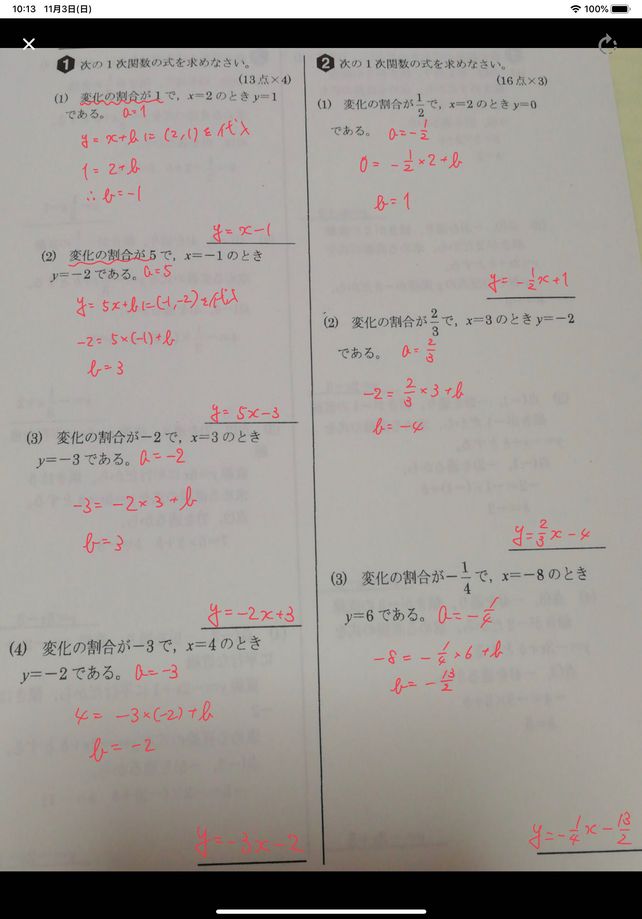 10:13 11月3日(日)
100%
1 次の1次関数の式を求めなさい。
(13点×4)
(1) 変化の割合が1で，x=2のときy=1
である。 a=1
y=x+bに(2,1)を代入
1=2+b
∴b=-1
y=x-1
(2) 変化の割合が5で，x=-1のとき
y=-2である。 a=5
y=5x+bに(-1,-2)を代入
-2=5×(-1)+b
b=3
y=5x-3
(3) 変化の割合が-2で，x=3のとき
y=-3である。 a=-2
-3=-2×3+b
b=3
y=-2x+3
(4) 変化の割合が-3で，x=4のとき
y=-2である。 a=-3
4=-3×(-2)+b
b=-2
y=-3x-2
2 次の1次関数の式を求めなさい。
(16点×3)
(1) 変化の割合が1/2で，x=2のときy=0
である。 a=-1/2
0=-1/2×2+b
b=1
y=-1/2x+1
(2) 変化の割合が2/3で，x=3のときy=-2
である。 a=2/3
-2=2/3×3+b
b=-4
y=2/3x-4
(3) 変化の割合が-1/4で，x=-8のとき
y=6である。 a=-1/4
-8=-1/4×6+b
b=-13/2
y=-1/4x-13/2